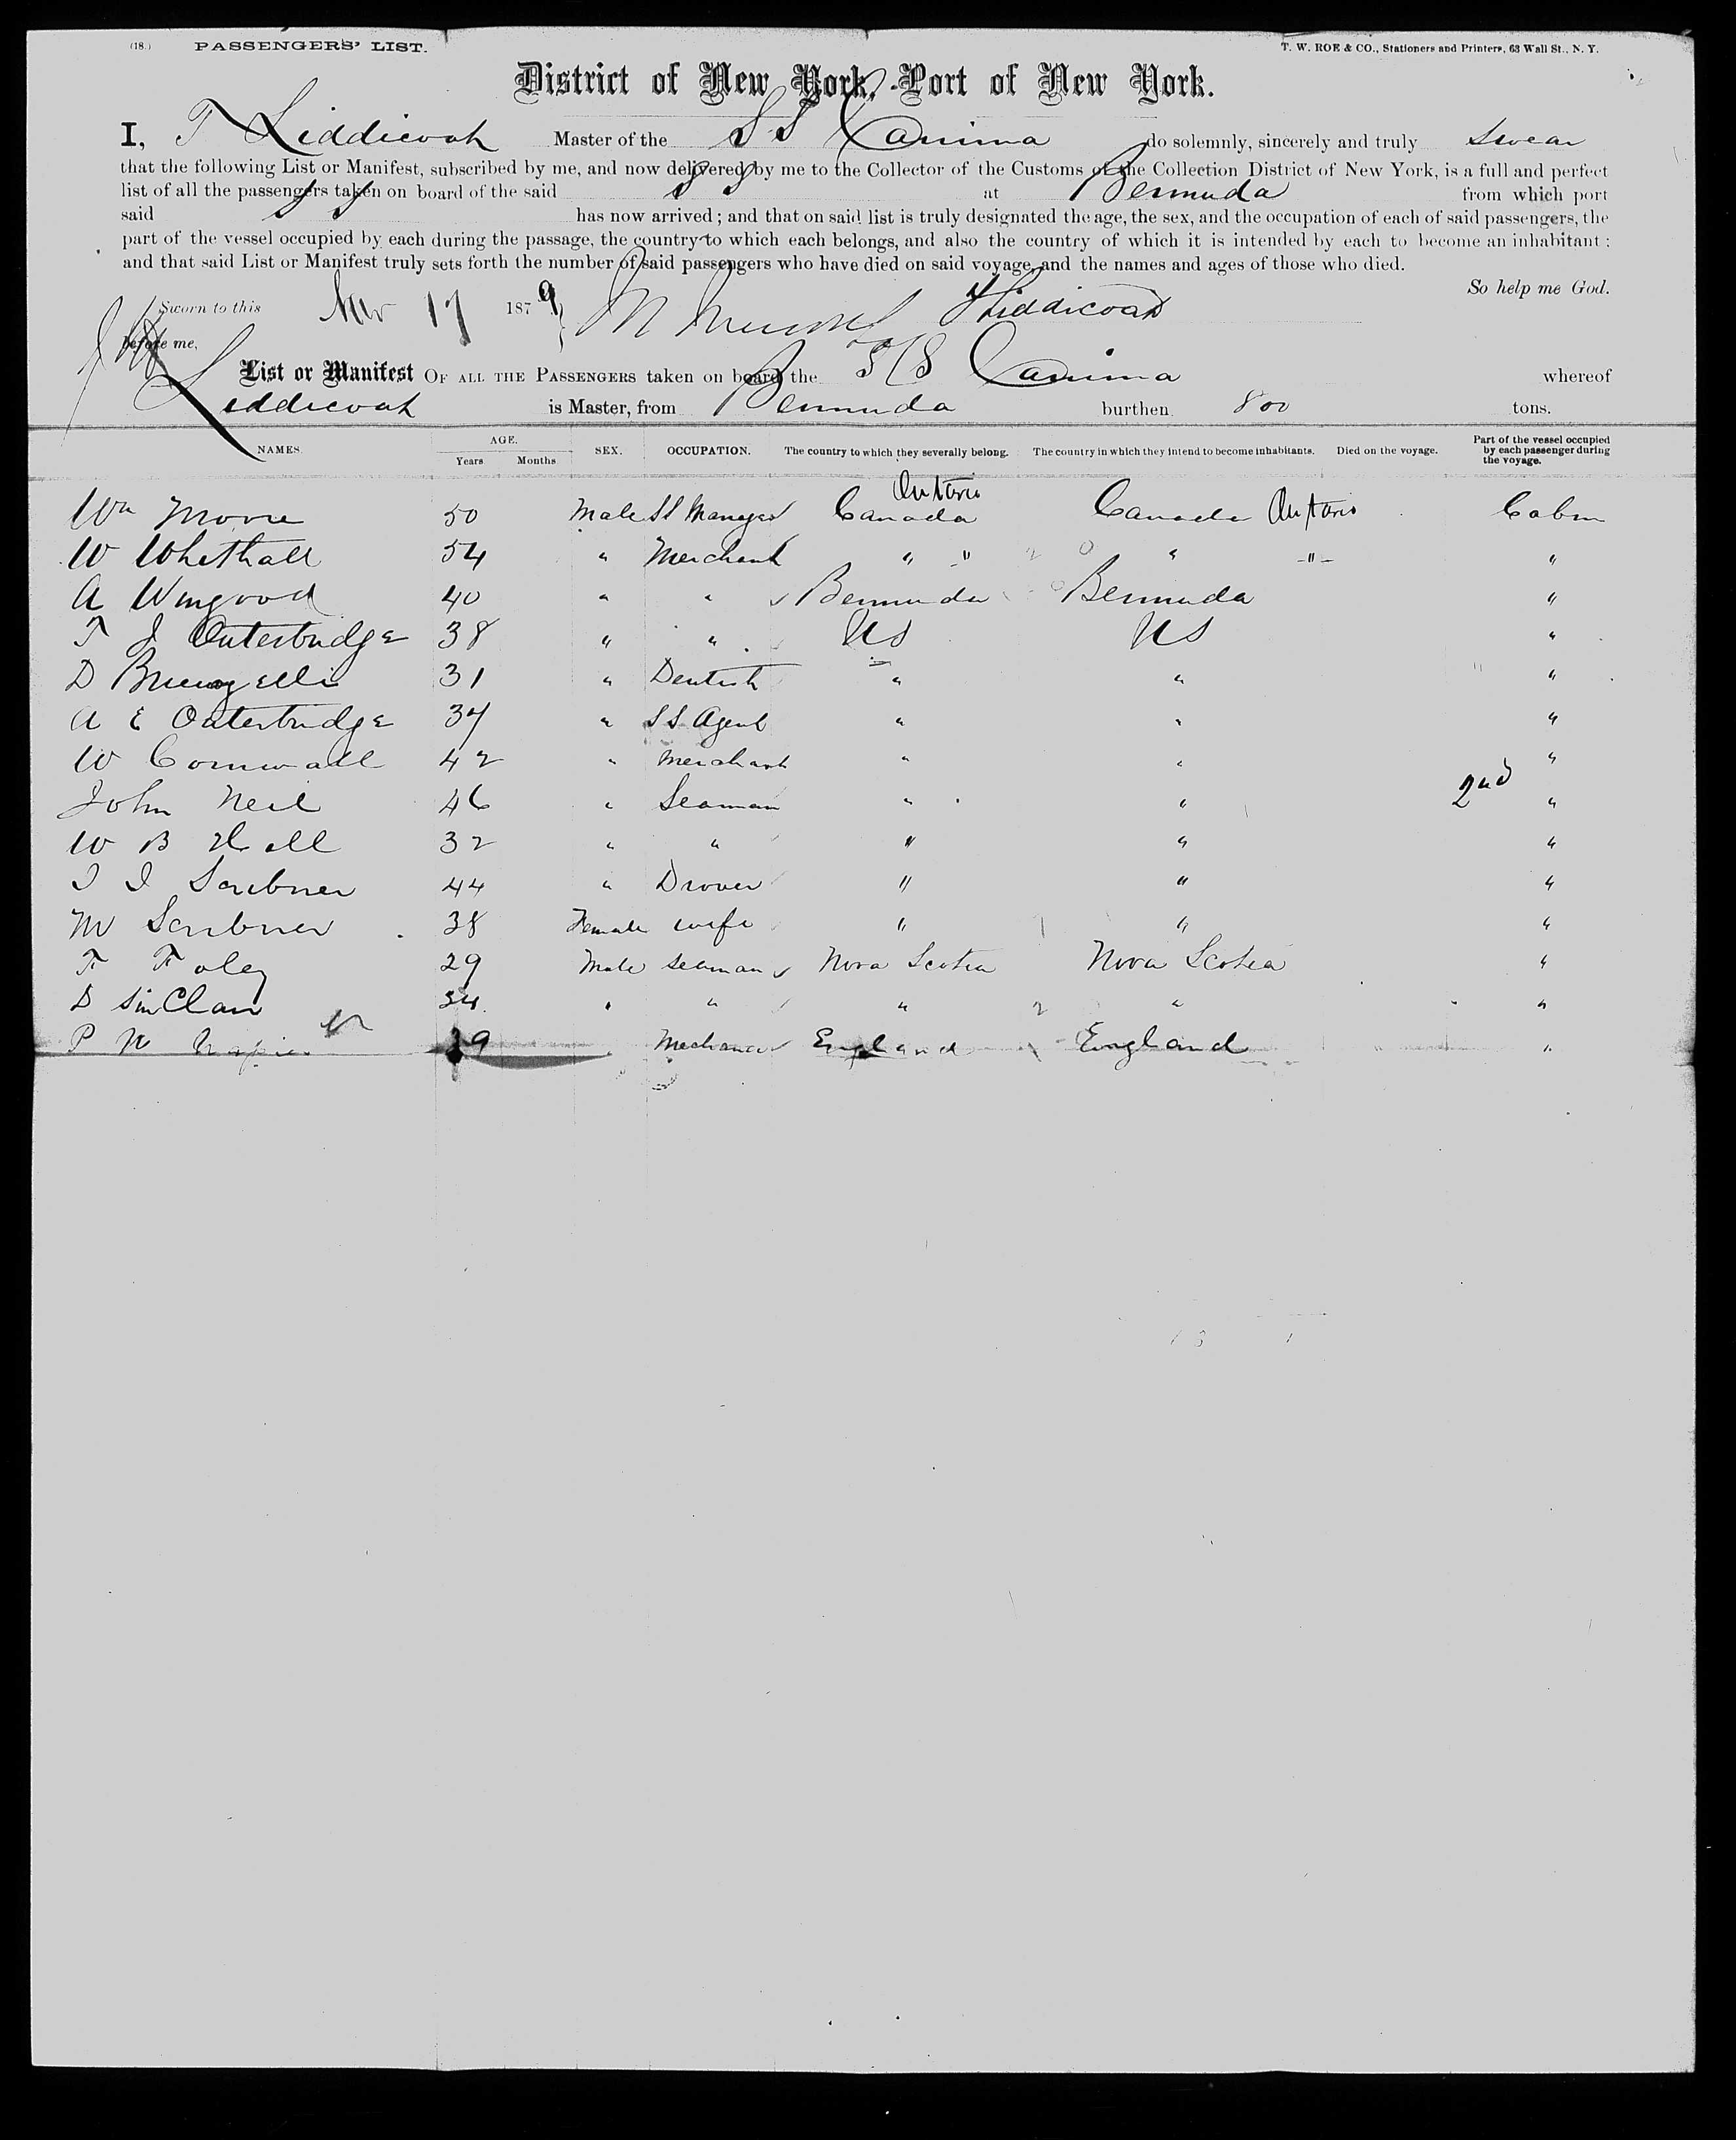 (18.) PASSENGERS' LIST. T. W. ROE & CO., Stationers and Printers, 63 Wall St., N. Y.
District of New York,-Port of New York.
I, T Liddicoat Master of the S S Canima do solemnly, sincerely and truly swear
that the following List or Manifest, subscribed by me, and now delivered by me to the Collector of the Customs of the Collection District of New York, is a full and perfect
list of all the passengers taken on board of the said S S at Bermuda from which port
said S S has now arrived; and that on said list is truly designated the age, the sex, and the occupation of each of said passengers, the
part of the vessel occupied by each during the passage, the country to which each belongs, and also the country of which it is intended by each to become an inhabitant;
and that said List or Manifest truly sets forth the number of said passengers who have died on said voyage, and the names and ages of those who died.
So help me God.
Sworn to this Nov 17 1879 T Liddicoat
before me,
List or Manifest OF ALL THE PASSENGERS taken on board the S/S Canima whereof
Liddicoat is Master, from Bermuda burthen 800 tons.
NAMES. AGE. Years Months SEX. OCCUPATION. The country to which they severally belong. The country in which they intend to become inhabitants. Died on the voyage. Part of the vessel occupied by each passenger during the voyage.
Wm Moore 50 Male SS Manager Canada Ontario Canada Ontario Cabin
W Whithall 54 " Merchant " " " -"- "
A Wingood 40 " " Bermuda Bermuda "
T J Outerbridge 38 " " US US "
D 31 " Dentist " " "
A E Outerbridge 34 " SS Agent " " "
W Cornwall 42 " Merchant " " "
John Neil 46 " Seaman " " 2nd "
W B Hill 32 " " " " "
J J Scribner 44 " Drover " " "
M Scribner 38 Female wife " " "
T Foley 29 Male Seaman Nova Scotia Nova Scotia "
D SinClair 34 " " " " "
P N 39 Mechanic England England "